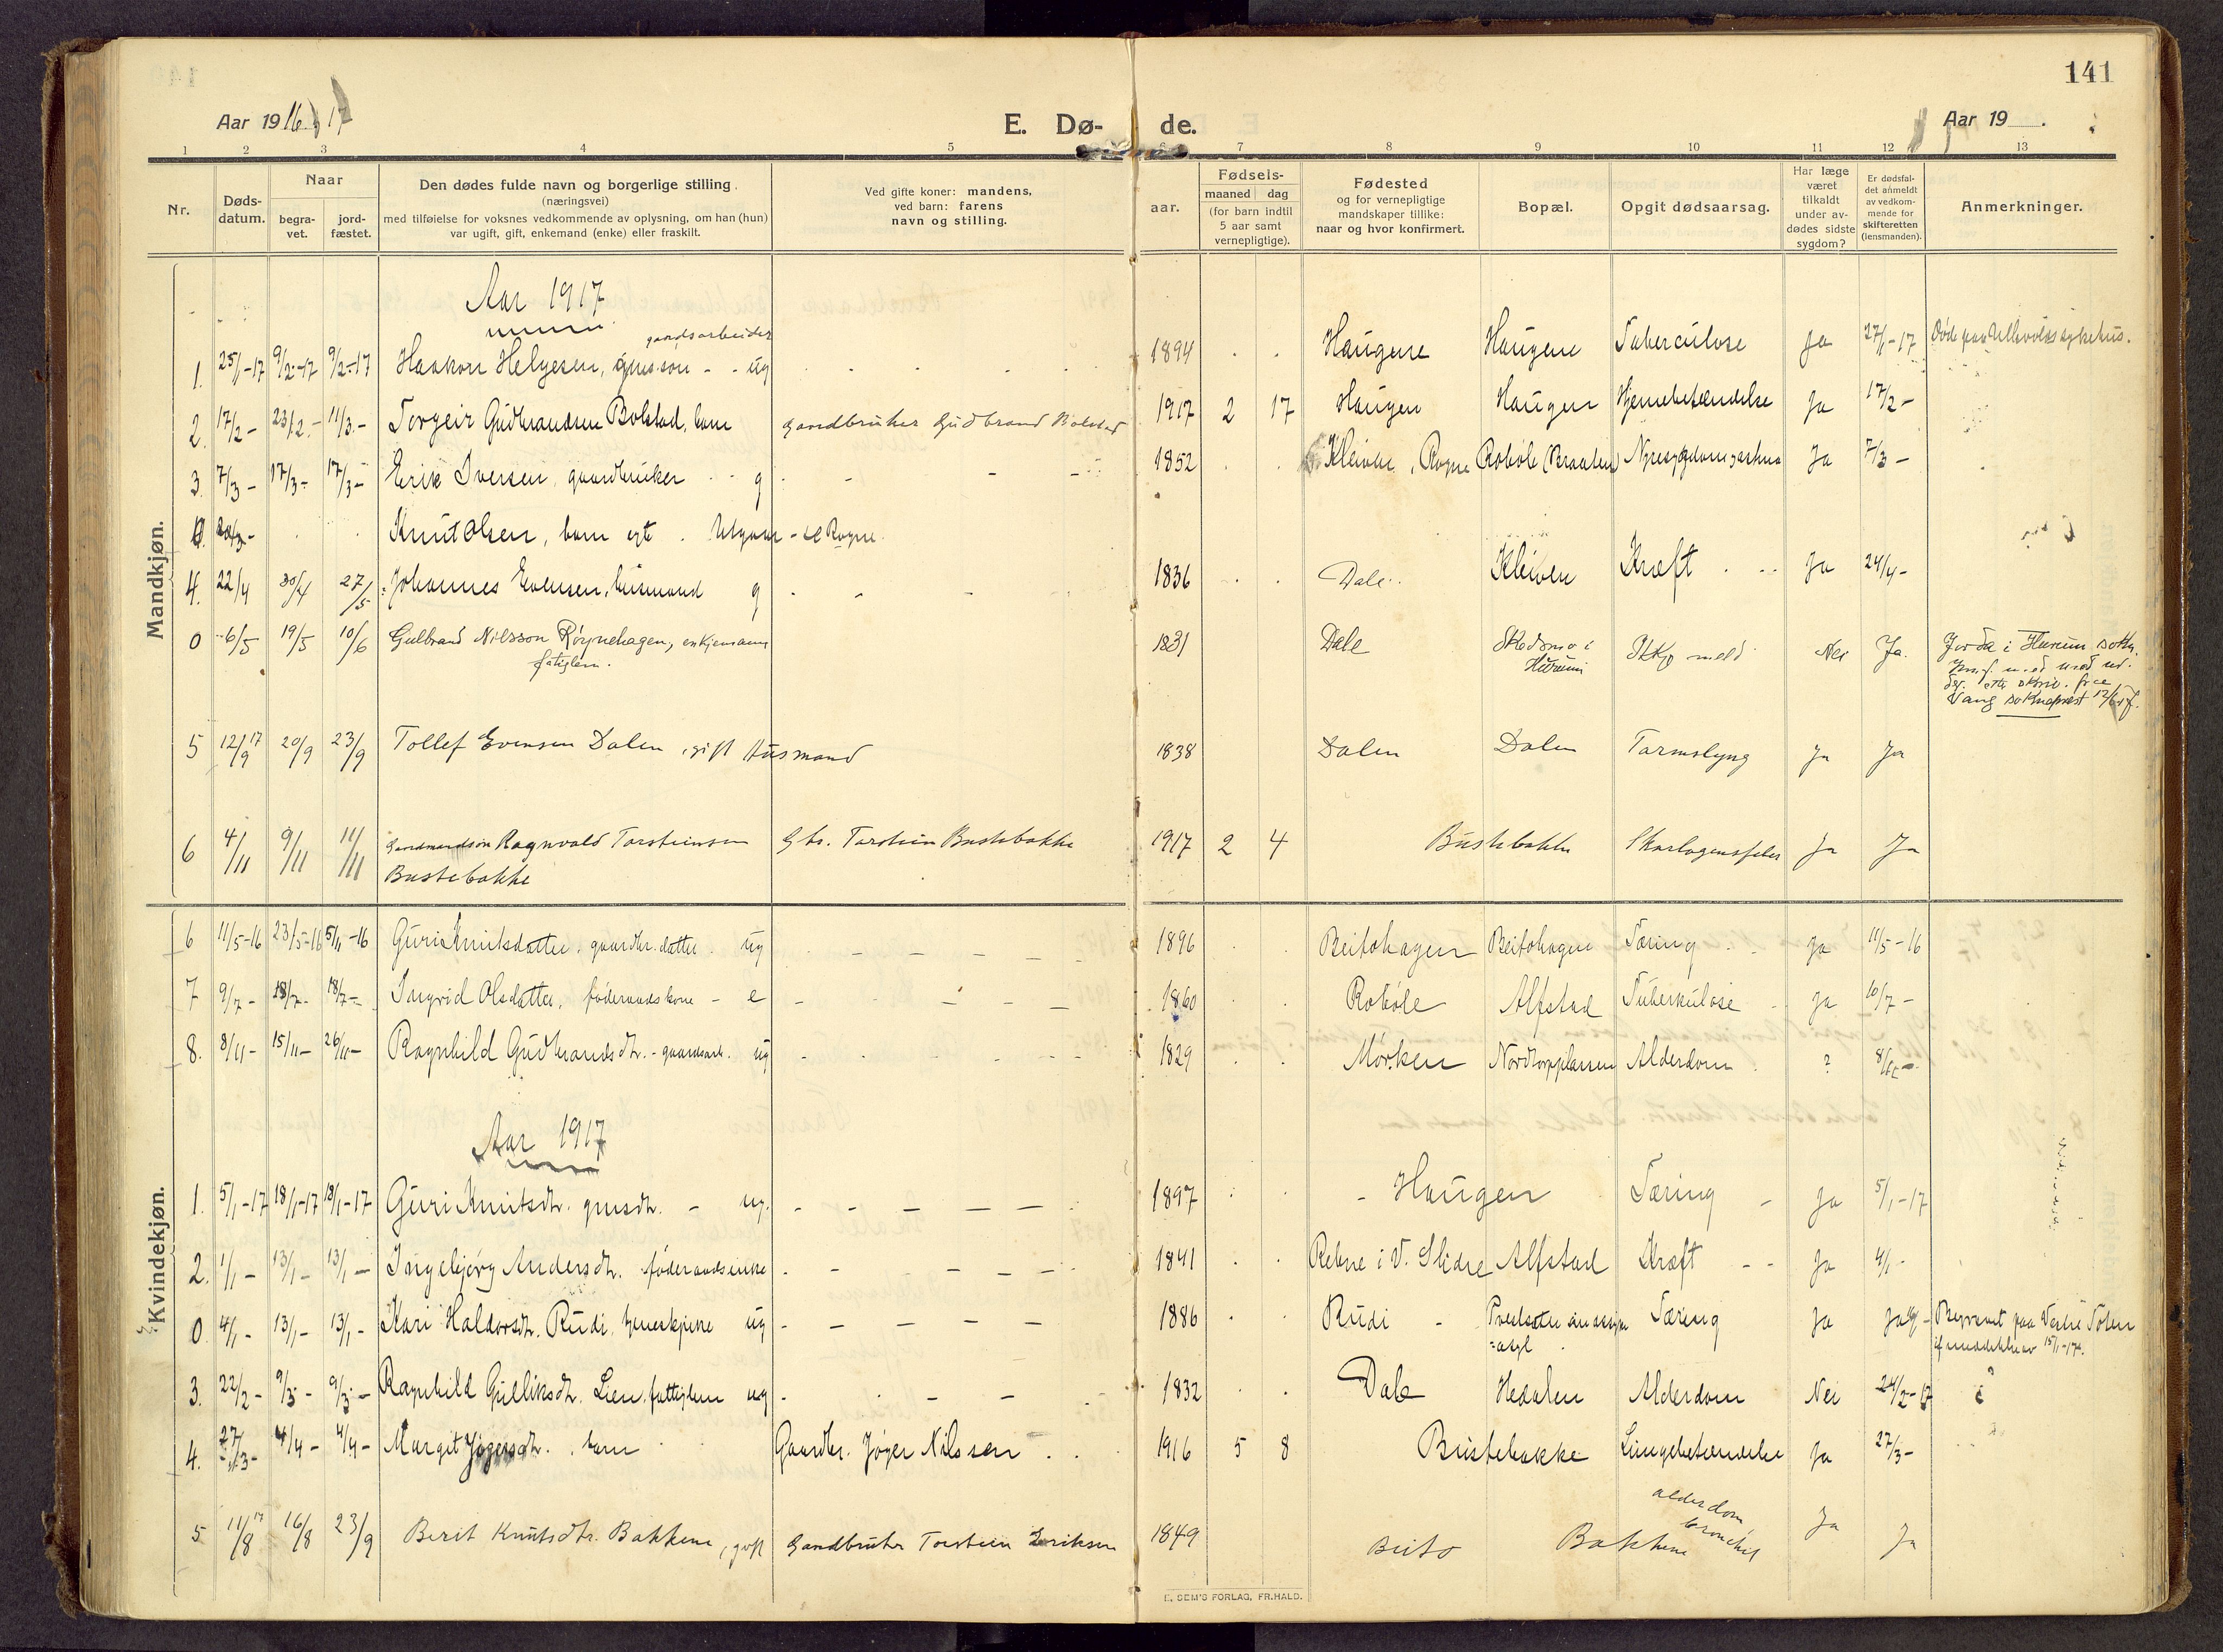 141
Aar 1916, 17
E. Dø- de.
Aar 19 .
1 2 3 4 5 6 7 8 9 10 11 12 13
Nr.
Døds-
datum.
Naar
begra-
vet.
jord-
fæstet.
Den dødes fulde navn og borgerlige stilling
(næringsvei)
med tilføielse for voksnes vedkommende av oplysning, om han (hun)
var ugift, gift, enkemand (enke) eller fraskilt.
Ved gifte koner: mandens,
ved barn: farens
navn og stilling.
aar.
Fødsels-
maaned dag
(for barn indtil
5 aar samt
vernepligtige).
Fødested
og for vernepligtige
mandskaper tillike:
naar og hvor konfirmert.
Bopæl.
Opgit dødsaarsag.
Har læge
været
tilkaldt
under av-
dødes sidste
sygdom?
Er dødsfal-
det anmeldt
av vedkom-
mende for
skifteretten
(lensmanden).
Anmerkninger.
Mandkjøn.
Aar 1917
gaardsarbeider
1. 25/1-17 9/2-17 9/2-17 Haakon Helgesen, gmssøn - - ug 1894 Haugene Haugene Tuberculose Ja 27/1-17 Døde paa Ullevolds sykehus.
2. 17/2- 23/2- 11/3- Torgeir Gudbrandsen Bolstad, barn gaardbruker Gudbrand Bolstad 1917 2 17 Haugen Haugen Hjernebetændelse Ja 17/2-
3. 7/3- 17/3- 17/3- Erik Iversen, gaardbruker g 1852 Kleiven, Rogne Robøle (Braaten) Ja 7/3-
Knut Olsen, barn egte Rogne.
4. 22/4 30/4 27/5 Johannes Evensen, husmand g 1836 Dale Kleiven Kræft Ja 24/4-
0 6/5 19/5 10/6 Gulbrand Nilsson Røgnehagen, enkjemann 1831 Dale Skodsmo i Nei Ja. Jorda i Hurum sokn.
fatiglem. Hurum
Vang sokneprest
5 12/9 17 20/9 23/9 Tollef Evensen Dalen, gift Husmand 1838 Dalen Dalen Tarmslyng Ja Ja
6 4/11 9/11 11/11 Gaardmandsøn Ragnvald Torsteinsen Gbr. Torstein Bustebakke 1917 2 4 Bustebakke Skarlagensfeber Ja Ja
Bustebakke
Kvindekjøn.
6 11/5-16 23/5-16 5/11-16 Guri Knutsdatter, gaardbr. datter ug 1896 Beitohagen Beitohagen Tæring Ja 11/5-16
7 9/7- 18/7- 18/7- Ingrid Olsdatter, føderaadskone - e 1860 Robøle Alfstad Tuberkulose Ja 10/7-
8. 8/11- 15/11- 26/11- Ragnhild Gudbrandsdtr. - gaardsarb. ug 1829 Mørken Nordtorpplassen Alderdom ? 8/11-
Aar 1917
1. 5/1-17 18/1-17 18/1-17 Guri Knutsdtr. gmsdtr. - ug. 1897 - Haugen Tæring - Ja 5/1-17
2. 1/1- 13/1- 13/1- Ingebjørg Andersdtr. føderaadsenke 1841 Rebne i V. Slidre Alfstad Kræft Ja 4/1-
0. 4/1- 13/1- 13/1- Kari Haldorsdtr. Rudi, tjeneskjene ug 1886 Rudi - Tæring Ja Ja Begravet paa Vestre Toten
=asyl if. meddelelse av 15/1-17.
3. 22/2- 9/3- 9/3- Ragnhild Gulliksdtr. Lien, fattiglem ug 1832 Dale Hedalen Alderdom Nei 24/2-17
4. 27/3- 4/4- 4/4- Margit Jøgersdtr., barn Gaardbr. Jøger Nilssen 1916 5 8 Bustebakke Lungebetændelse Ja 27/3-
5 11/8 17 16/8 23/9 Berit Knutsdtr. Bakkene, gift Gaardbruker Torstein Eriksen 1849 Beito Bakkene alderdom, bronchit Ja Ja
E. SEM'S FORLAG, FR.HALD.